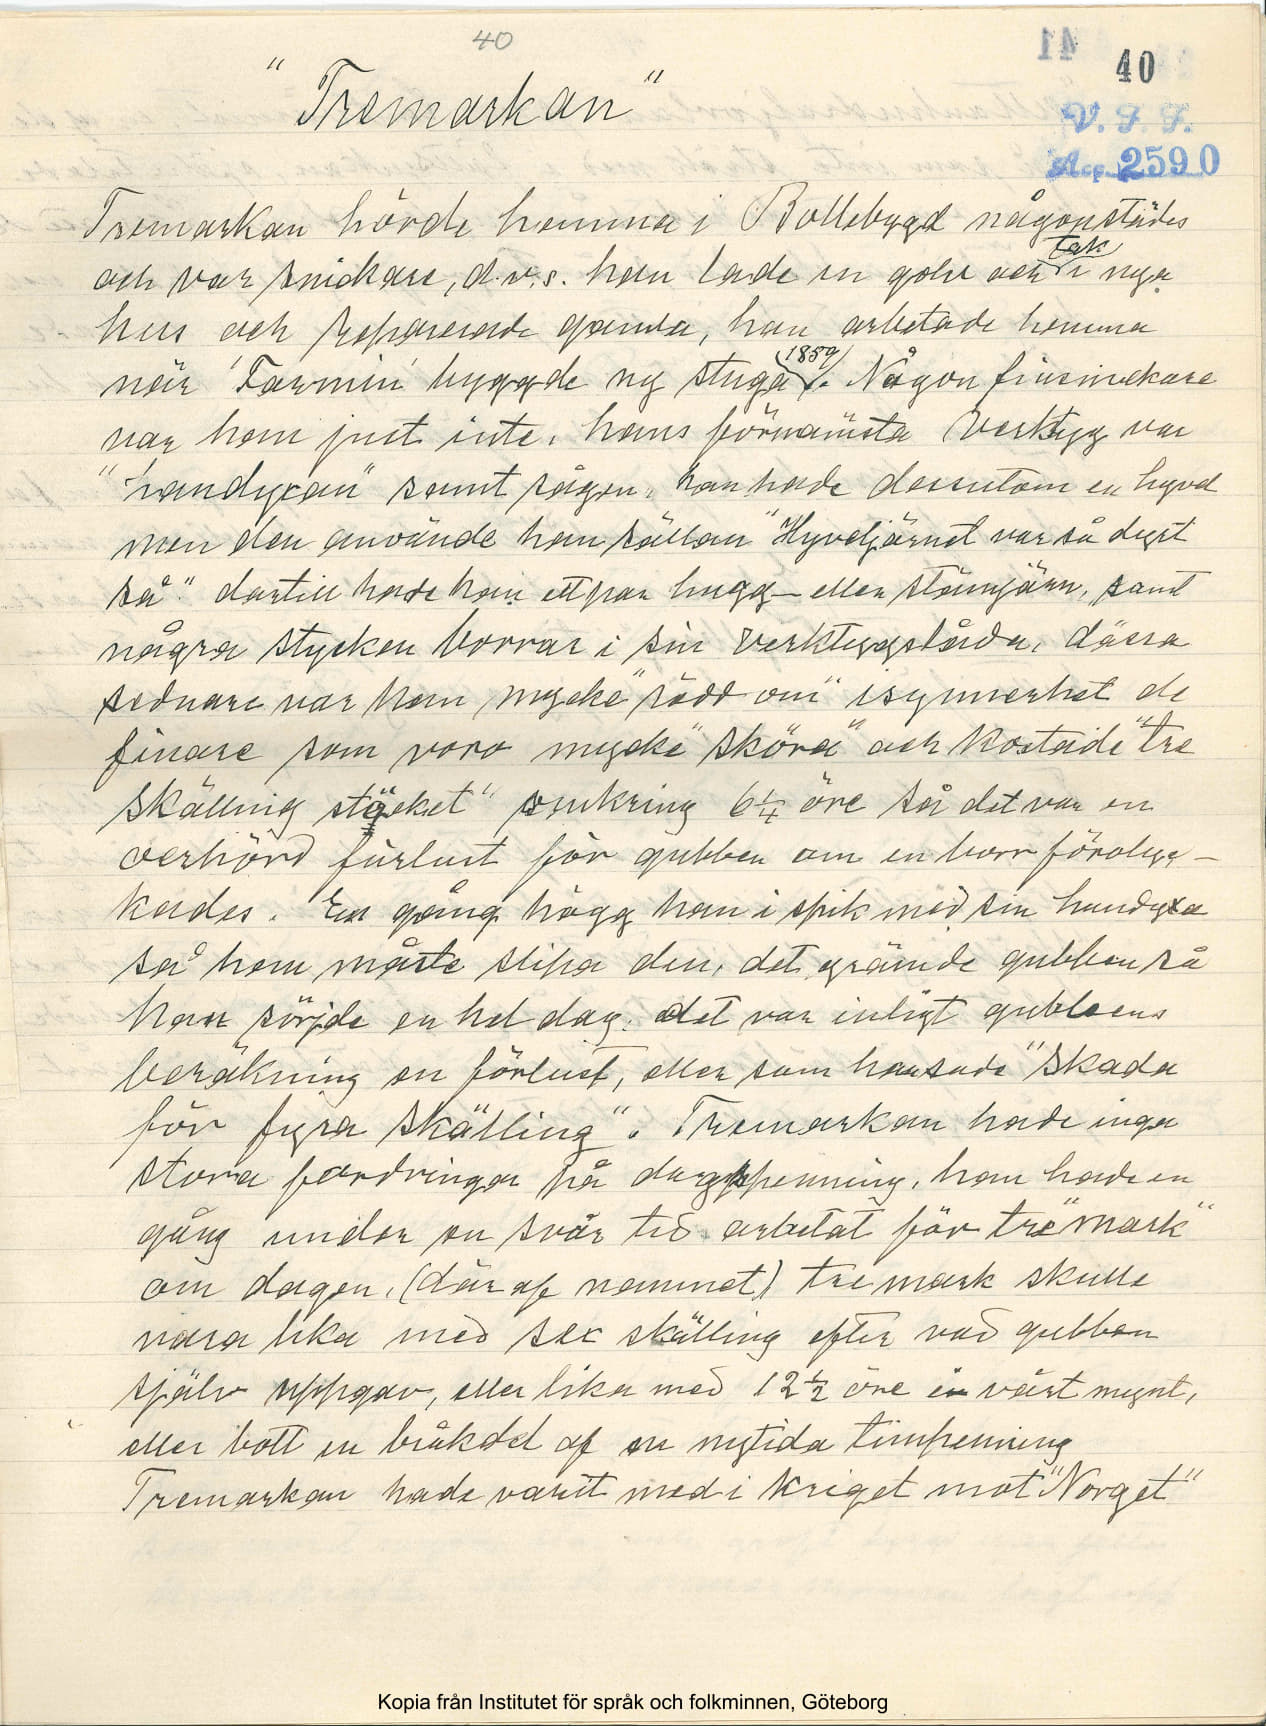 40
40
"Tremarkan"
V. F. F.
Acc. 2590
Tremarkan hörde hemma i Bollebygd någonstädes
och var snickare, d.v.s. han lade in golv och tak i nya
hus och reparerade gamla, han arbetade hemma
när 'Farmin' byggde ny stuga (1859). Någon finsnickare
var han just inte, hans förnämsta verktyg var
"handyxan" samt sågen, han hade dessutom en hyvel
men den använde han sällan "Hyveljärnet var så dyrt
så" dartill hade han ett par hugg- eller stämjärn, samt
några stycken borrar i sin verktygslåda, dässa
sednare var han mycke "rädd om" isynnerhet de
finare som voro mycke "sköra" och kostade "tre
skälling stäcket" omkring 6 1/4 öre så det var en
oerhörd förlust för gubben om en borr förolyc-
kades. En gång högg han i spik med sin handyxa
så han måste slipa den, det grämde gubben så
han sörjde en hel dag, det var inligt gubbens
beräkning en förlust, eller som han sade "skada
för fyra skälling". Tremarkan hade inga
stora fordringar på dagspenning, han hade en
gång under en svår tid arbetat för tre "mark"
om dagen, (där af namnet) tre mark skulle
vara lika med sex skälling efter vad gubben
själv uppgav, eller lika med 12 1/2 öre i vårt mynt,
eller bott en bråkdel af en nytida timpenning
Tremarkan hade varit med i kriget mot "Norget"
Kopia från Institutet för språk och folkminnen, Göteborg